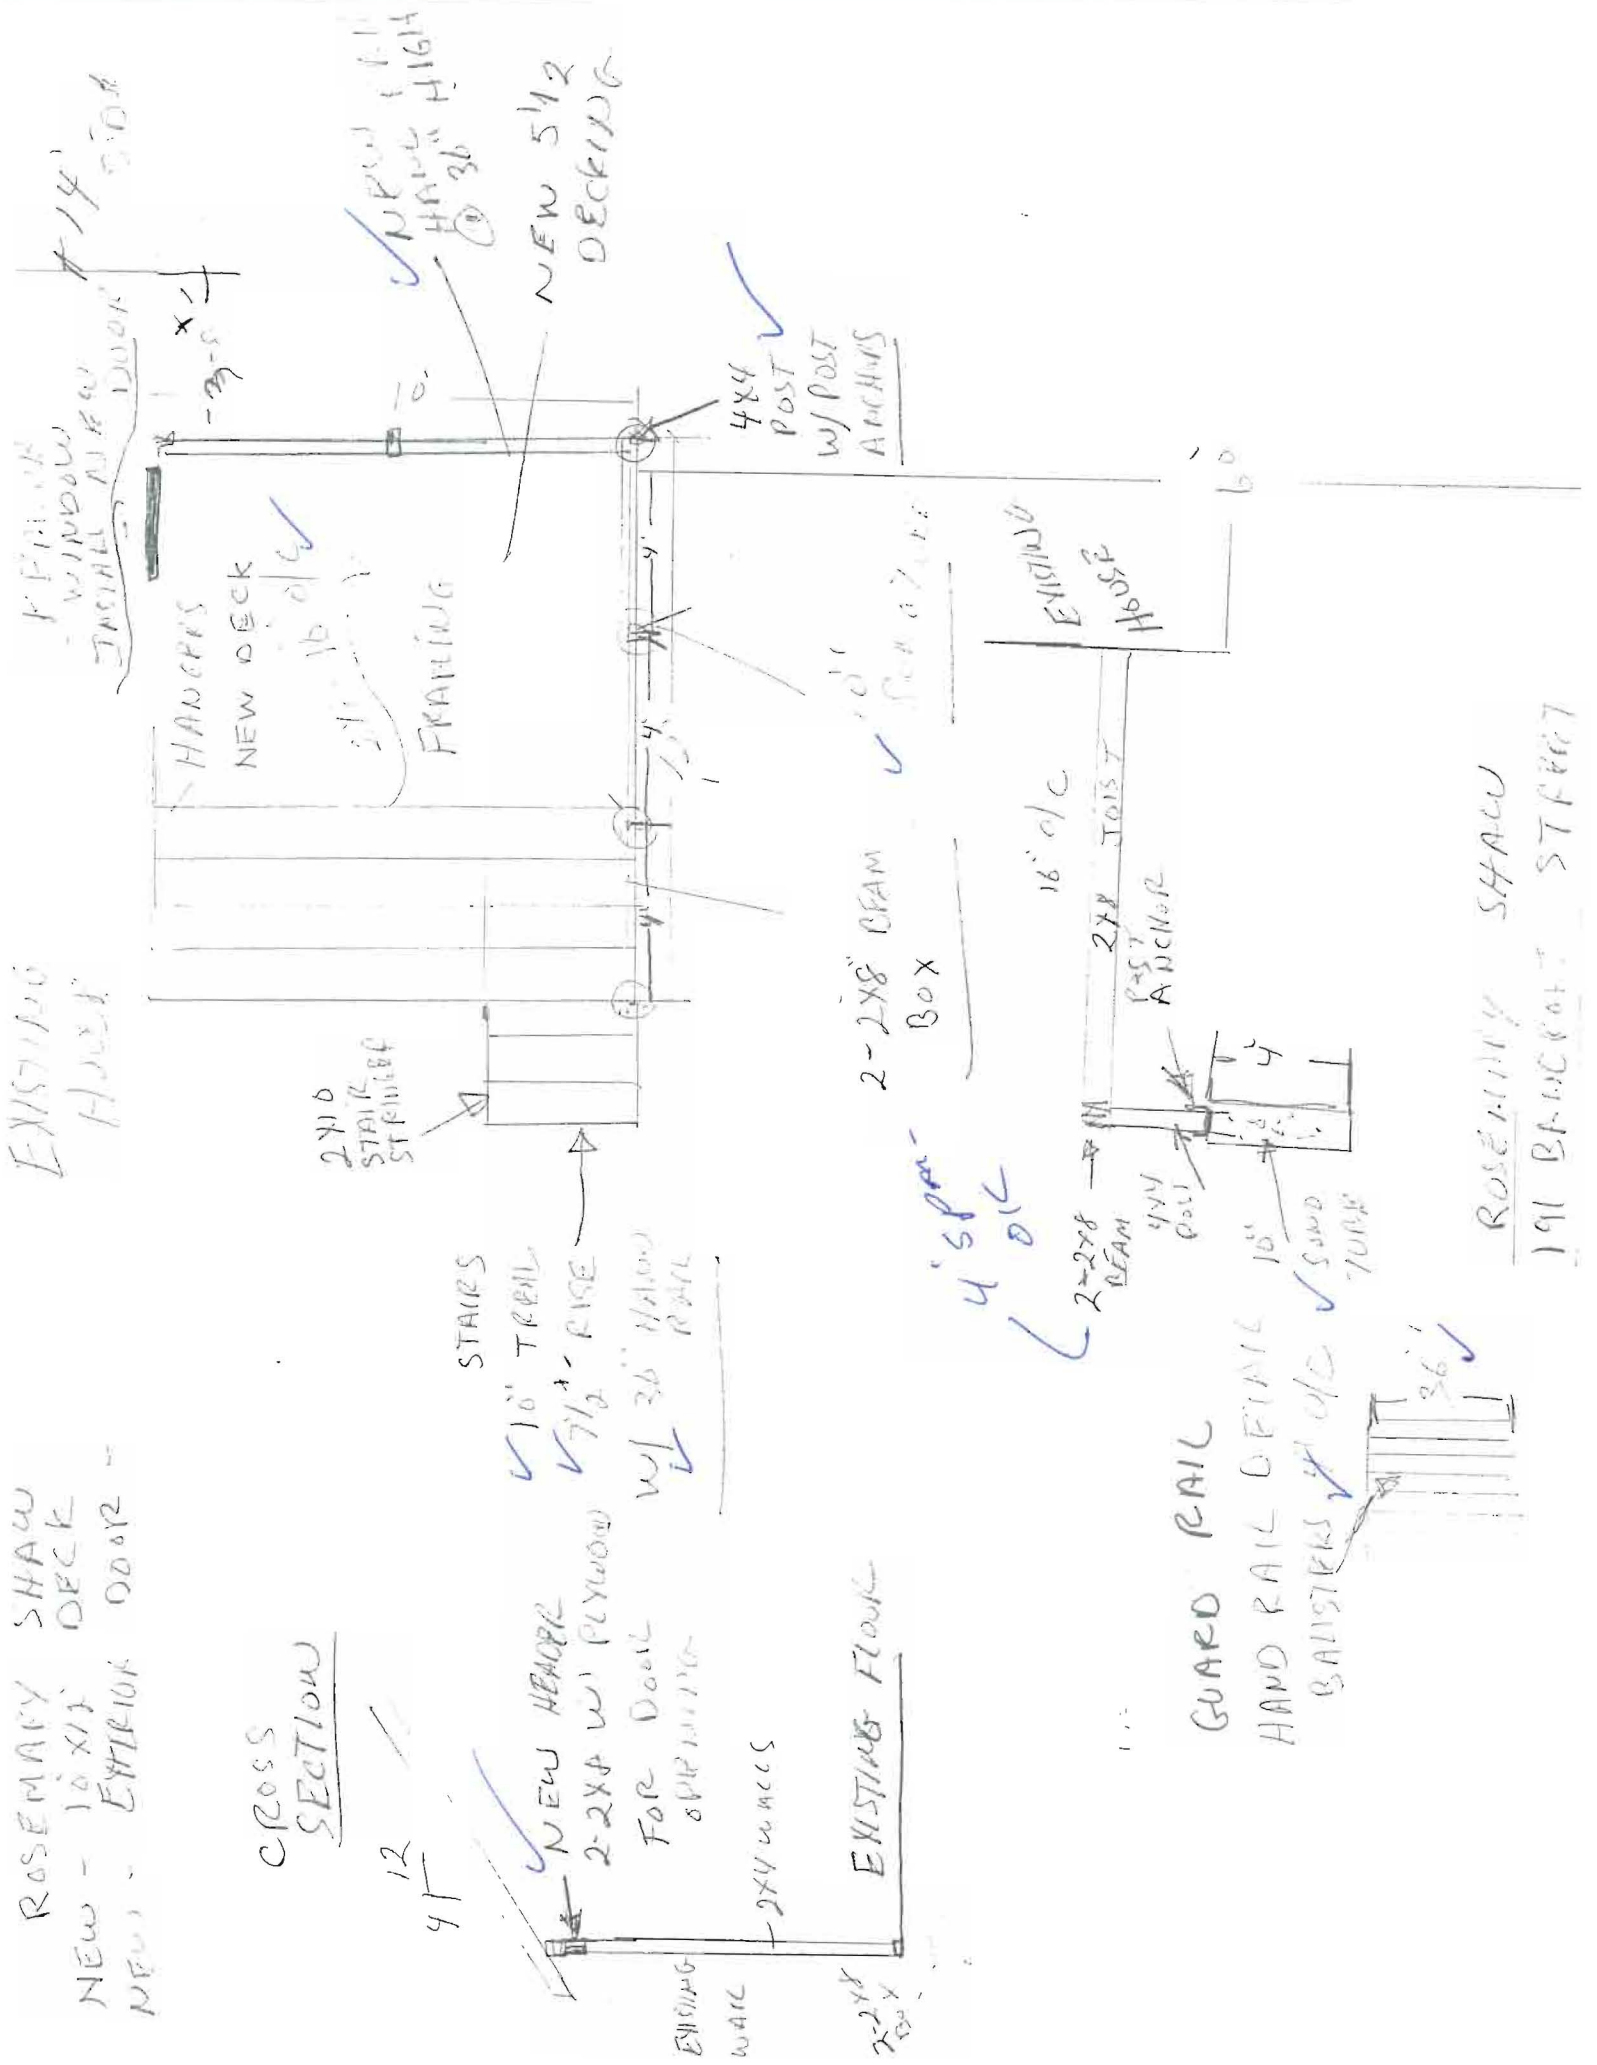 ROSEMARY SHAW
NEW - 10X12 DECK
NEW - EXTERIOR DOOR -
CROSS
SECTION
4 12
NEW HEADER
2-2X8 W/ PLYWOOD
FOR DOOR
OPENING
2X4 WALLS
EXISTING FLOOR
EXISTING
WALL
2-2X8
BOX
EXISTING
HOUSE
2X10
STAIR
STRINGER
STAIRS
10" TREAD
7 1/2" RISE
W/ 36" HAND
RAIL
HANGERS
NEW DECK
16 O/C
FRAMING
WINDOW
INSTALL NEW
DOOR
14'
NEW
HAND
@ 36" HIGH
NEW 5 1/2
DECKING
4X4
POST
W/ POST
ANCHORS
4'
4'
4'
10"
2-2X8" BEAM
BOX
4' SPAN
O/C
16" O/C
2X8 JOIST
EXISTING
HOUSE
POST
ANCHOR
2-2X8
BEAM
4X4
POST
4'
10"
SONO
TUBE
GUARD RAIL
HAND RAIL DETAIL
BALISTERS 4" O/C
36"
ROSEMARY SHAW
191 STREET